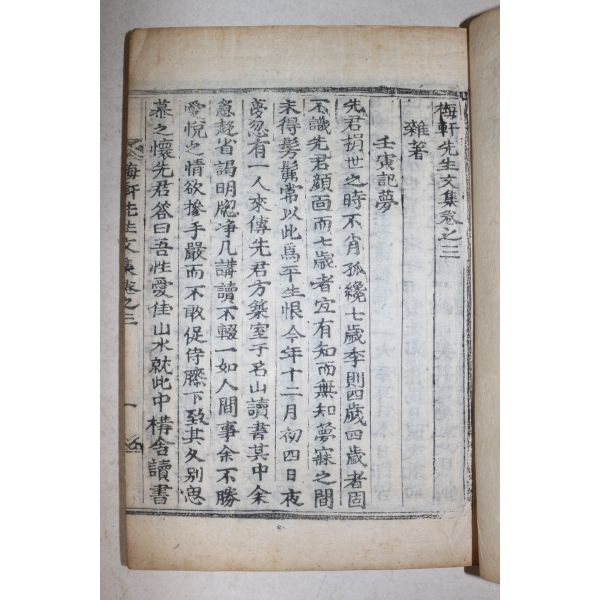 梅軒先生文集卷之三
雜著
壬寅記夢
先君捐世之時不肖孤纔七歲季則四歲四歲者固
不識先君顏面而七歲者宜有知而無知夢寐之間
未得髣髴常以此爲平生恨今年十二月初四日夜
夢忽有一人來傳先君方築室于名山讀書其中余
急趍省謁明牕净几講讀不輟一如人間事余不勝
愛悅之情欲摻手嚴而不敢促侍膝下致其久別思
慕之懷先君答曰吾性愛佳山水就此中構舍讀書
梅軒先生文集卷之三
一